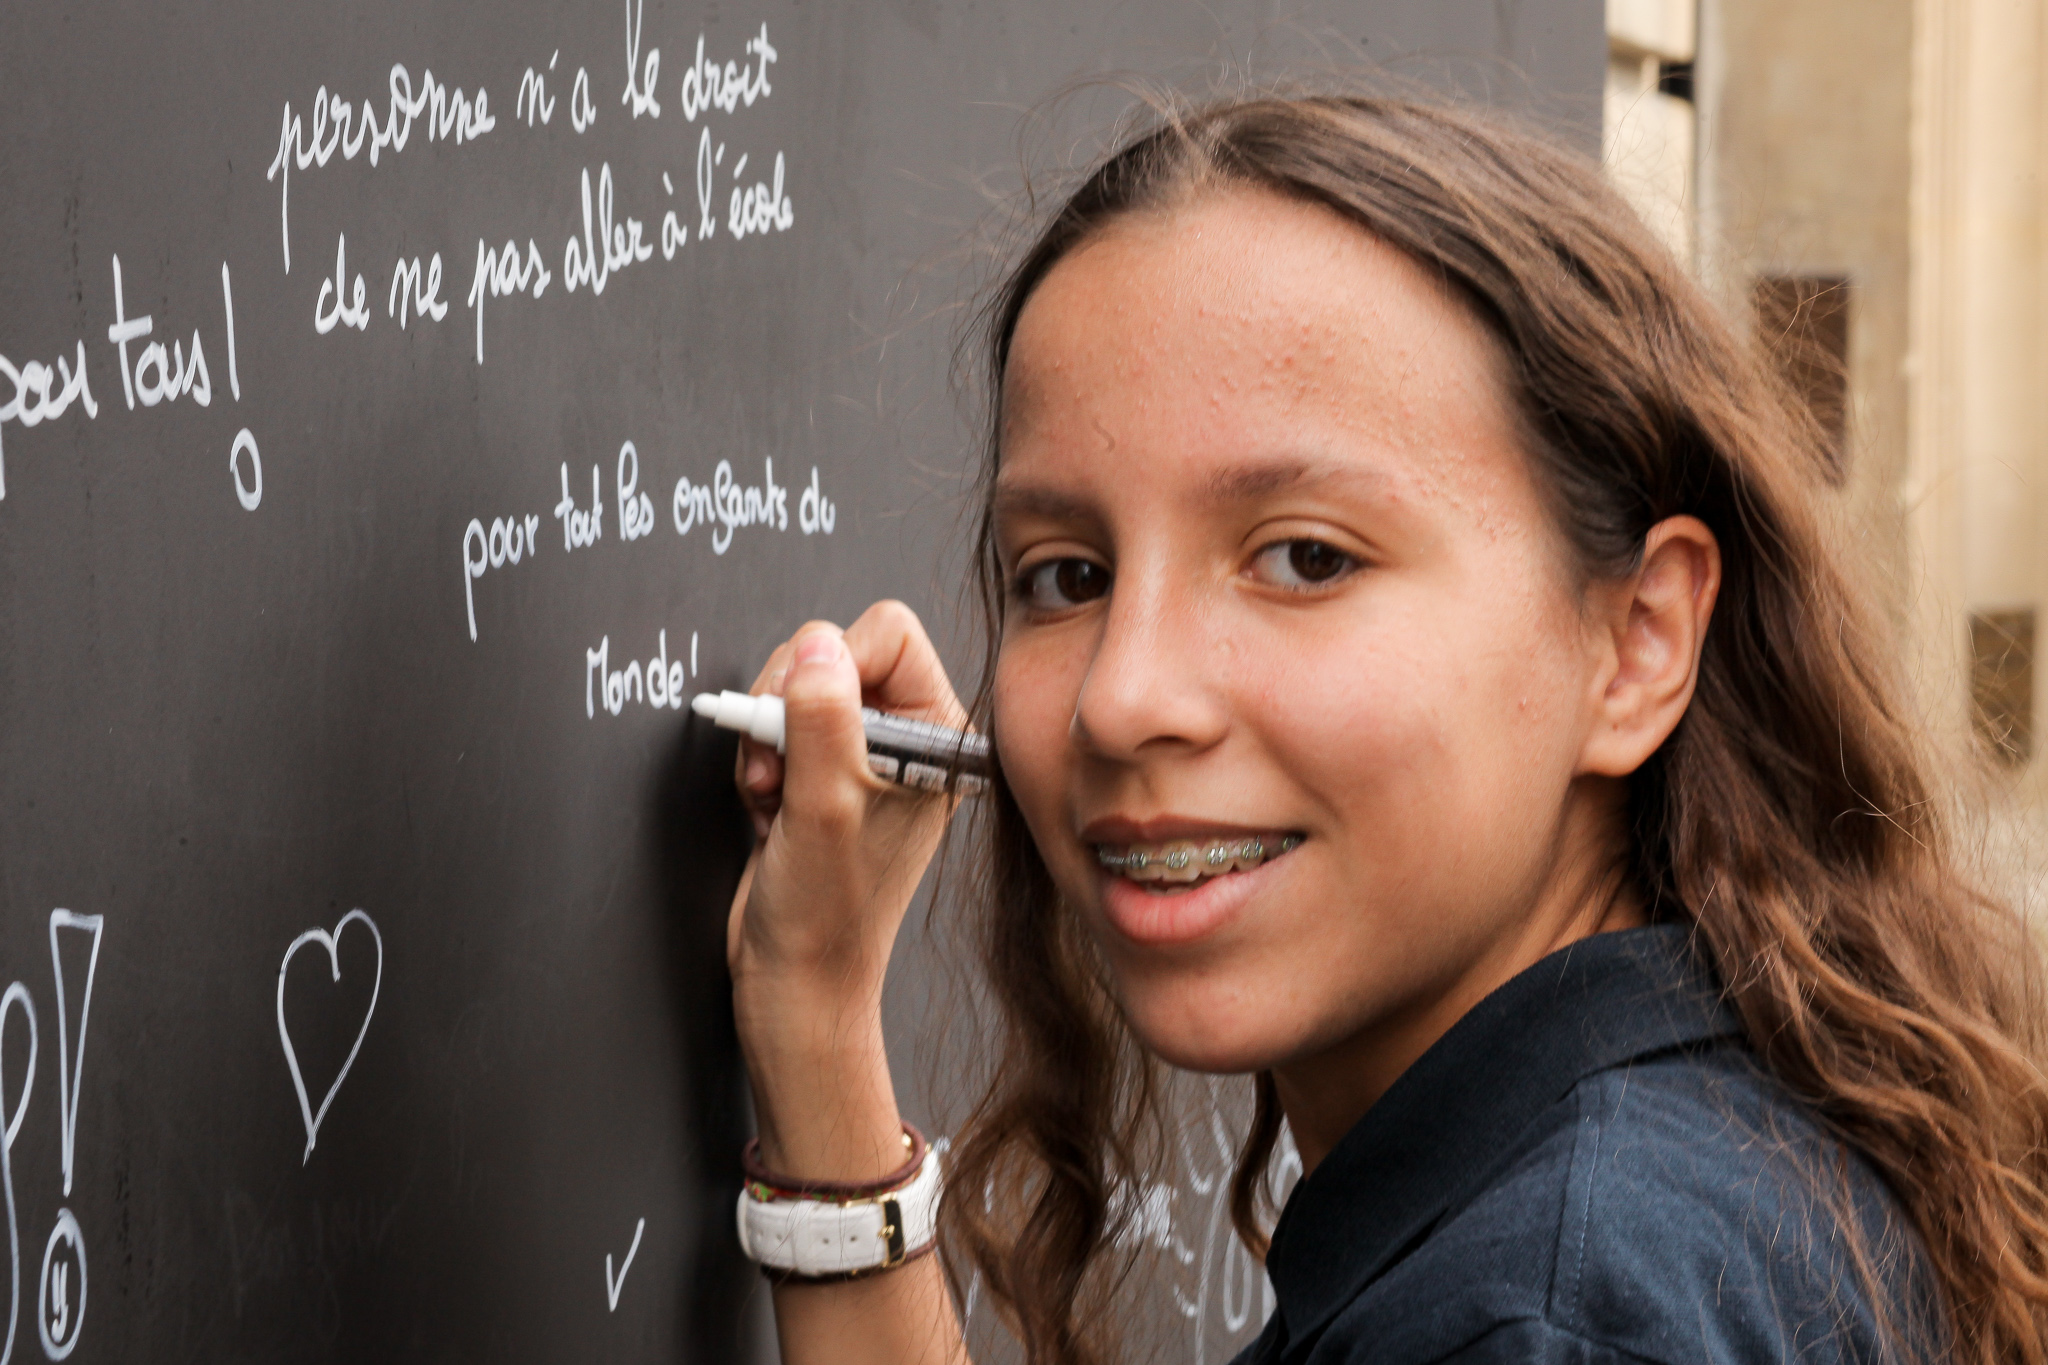 personne n'a le droit
de ne pas aller à l'école
pour tous!
pour tout les enfants du
Monde!